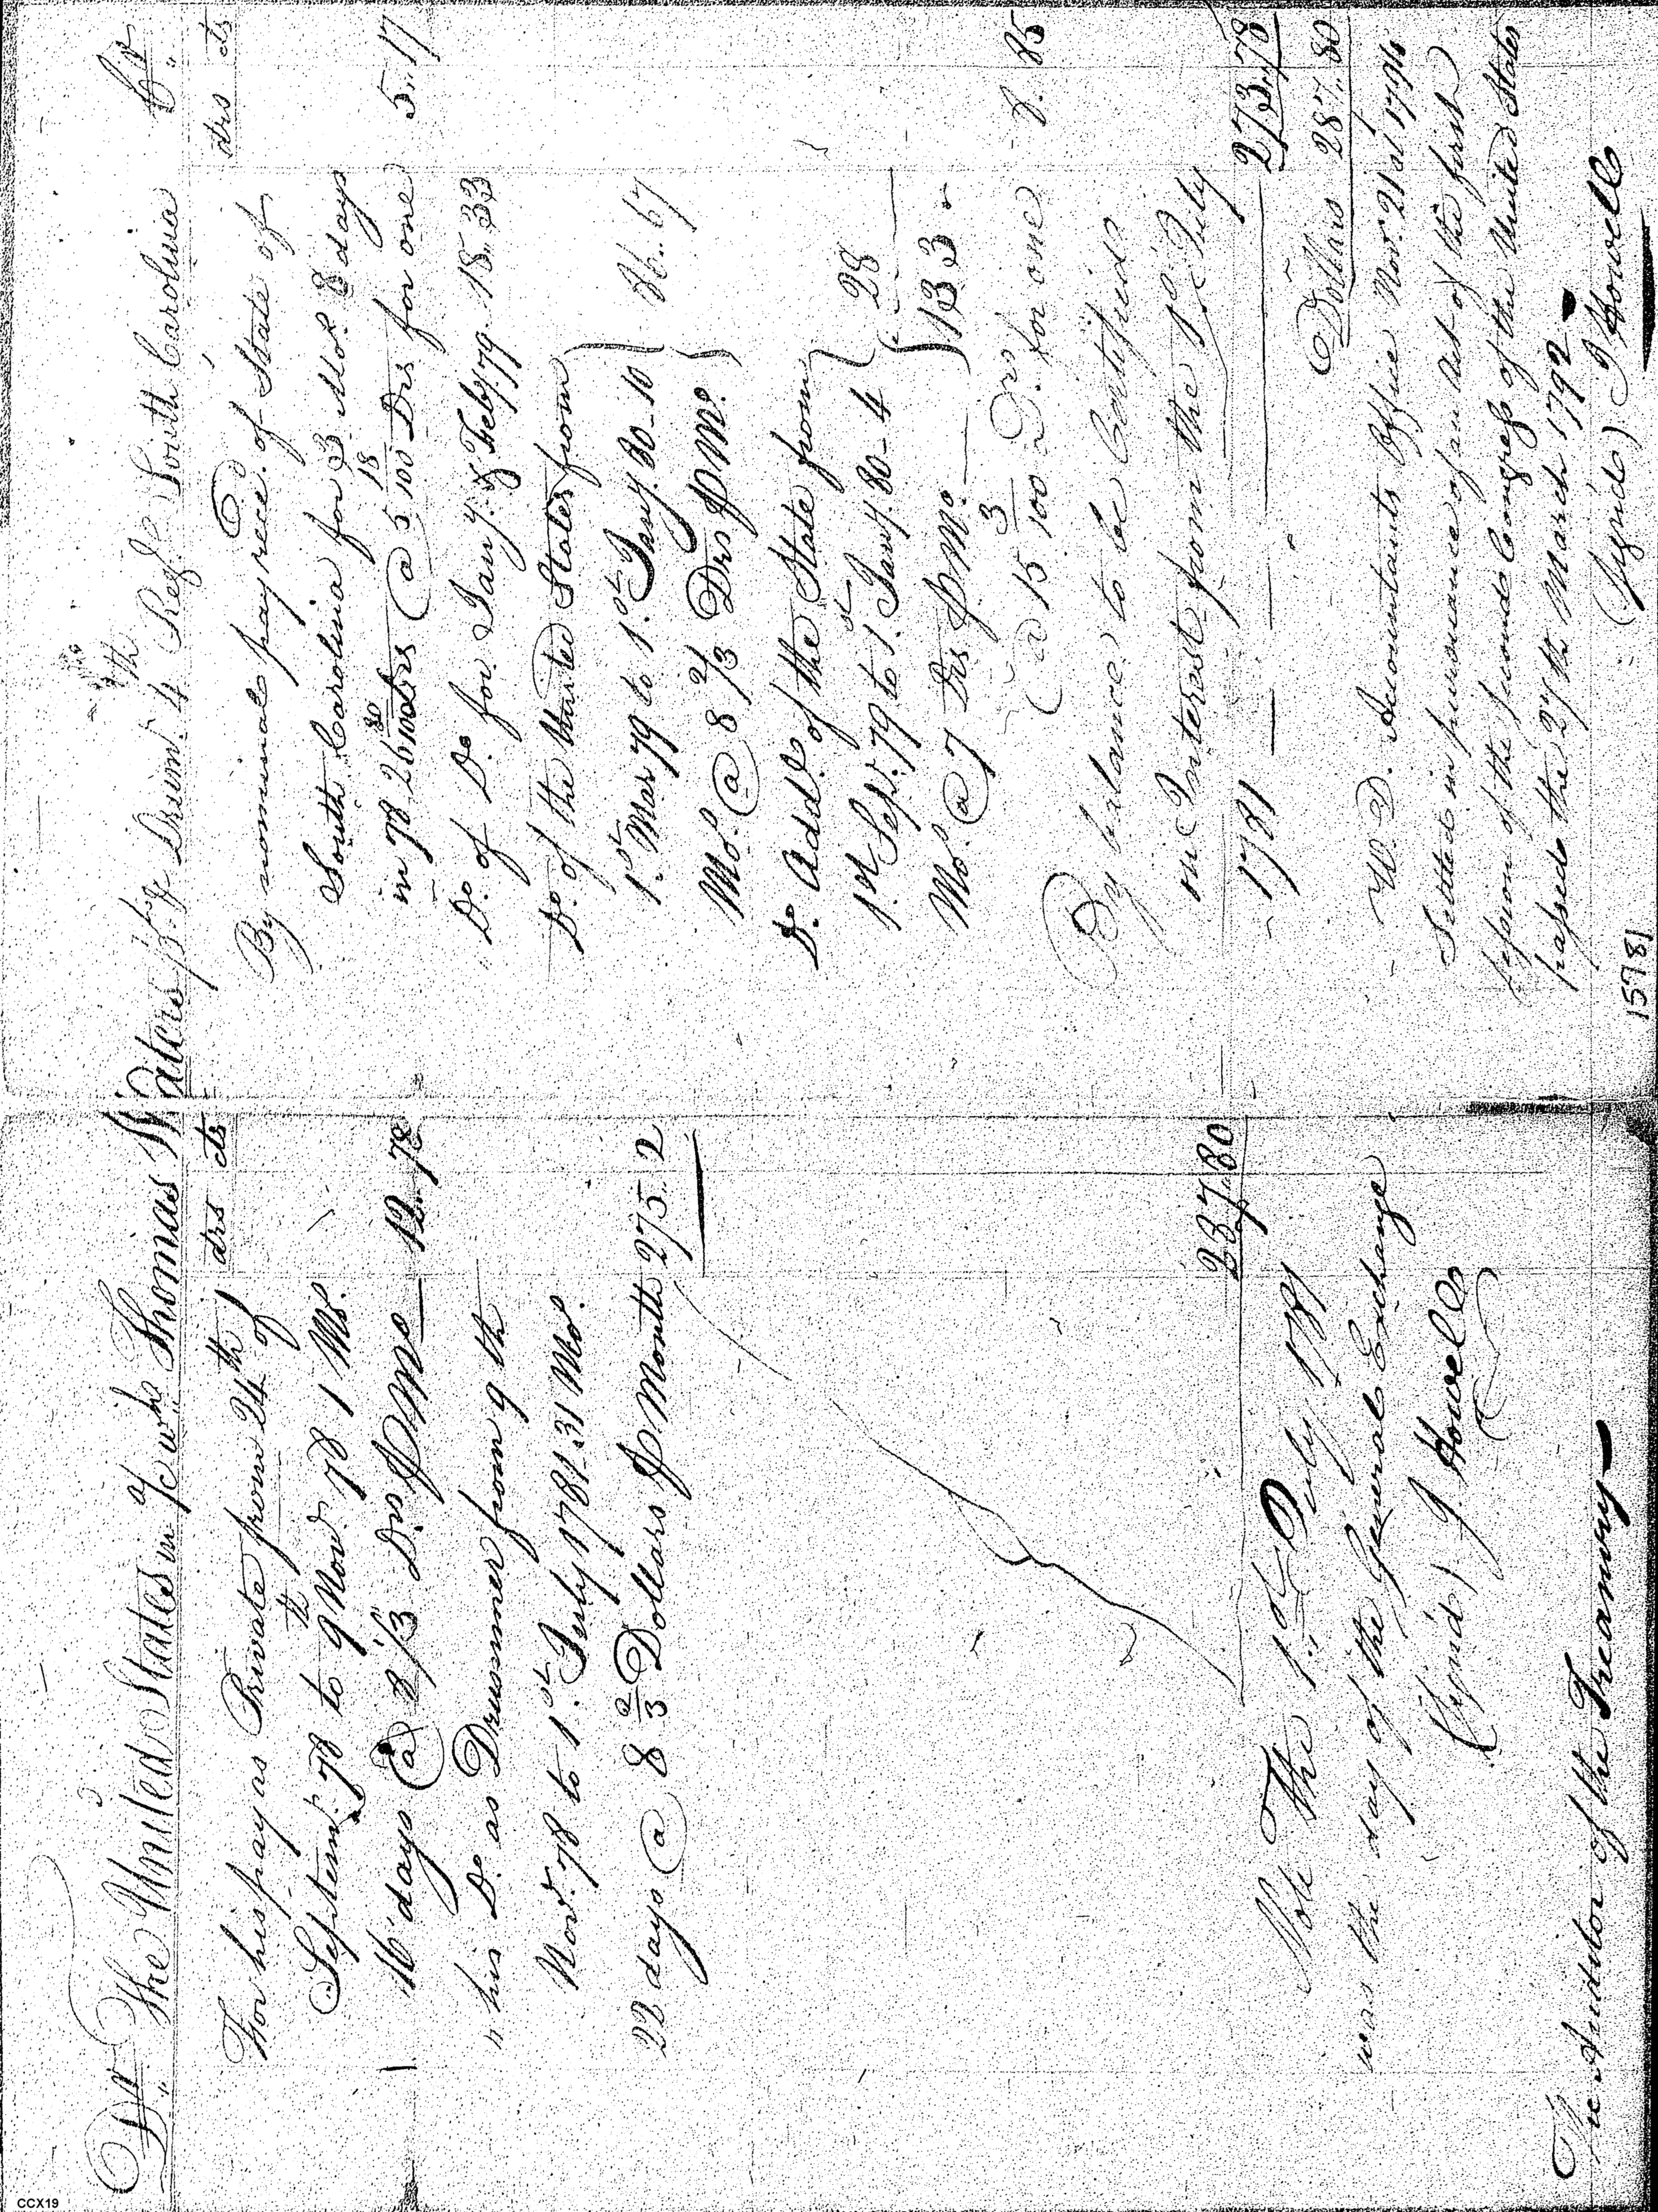 Dr. The United States in a/c wh. Thomas Waters Drumr. 4th Regt. South Carolina Cr.
drs cts
For his pay as Private from 24th of
Septemr. 78 to 9th Novr. 78 1 Mo.
16 days @ 8 1/3 Drs p Mo — 12.. 78
" his Do. as Drummer from 9th
Novr. 78 to 1st July 1781. 31 Mos.
22 days @ 8 2/3 Dollars p Month 275.. 2
287.. 80
Note The 1st July 1781
was the day of the General Exchange
(Signd) J. Howell
The Auditor of the Treasury —
drs cts
By nominal pay recd. of State of
South Carolina for 3 Mos. 8 days
in 78 26 80/100 drs @ 5 18/100 Drs for one 5.. 17
Do. of Do. for Jany. & Feby. 79. 18. 33
Do. of the United States from
1st Mar 79 to 1st Jany. 80 - 10 } 86. 67
Mos. @ 8 2/3 Drs p Mo. }
Do. Addl. of the State from
1st Sepr. 79 to 1st Jany. 80 - 4 } 28
Mos. @ 7 Drs p Mo. — } 133 "
@ 15 3/100 Drs. for one 8. 85
By balance to be Certified
on Interest from the 1st July
1781 — — 273.. 78
Dollars 287.. 80
W. D. Accountants Office Novr. 21st 1794
Settled in pursuance of an Act of the first
session of the second Congress of the United States
passed the 27th March 1792 —
(Signd) J Howell
15781
CCX19